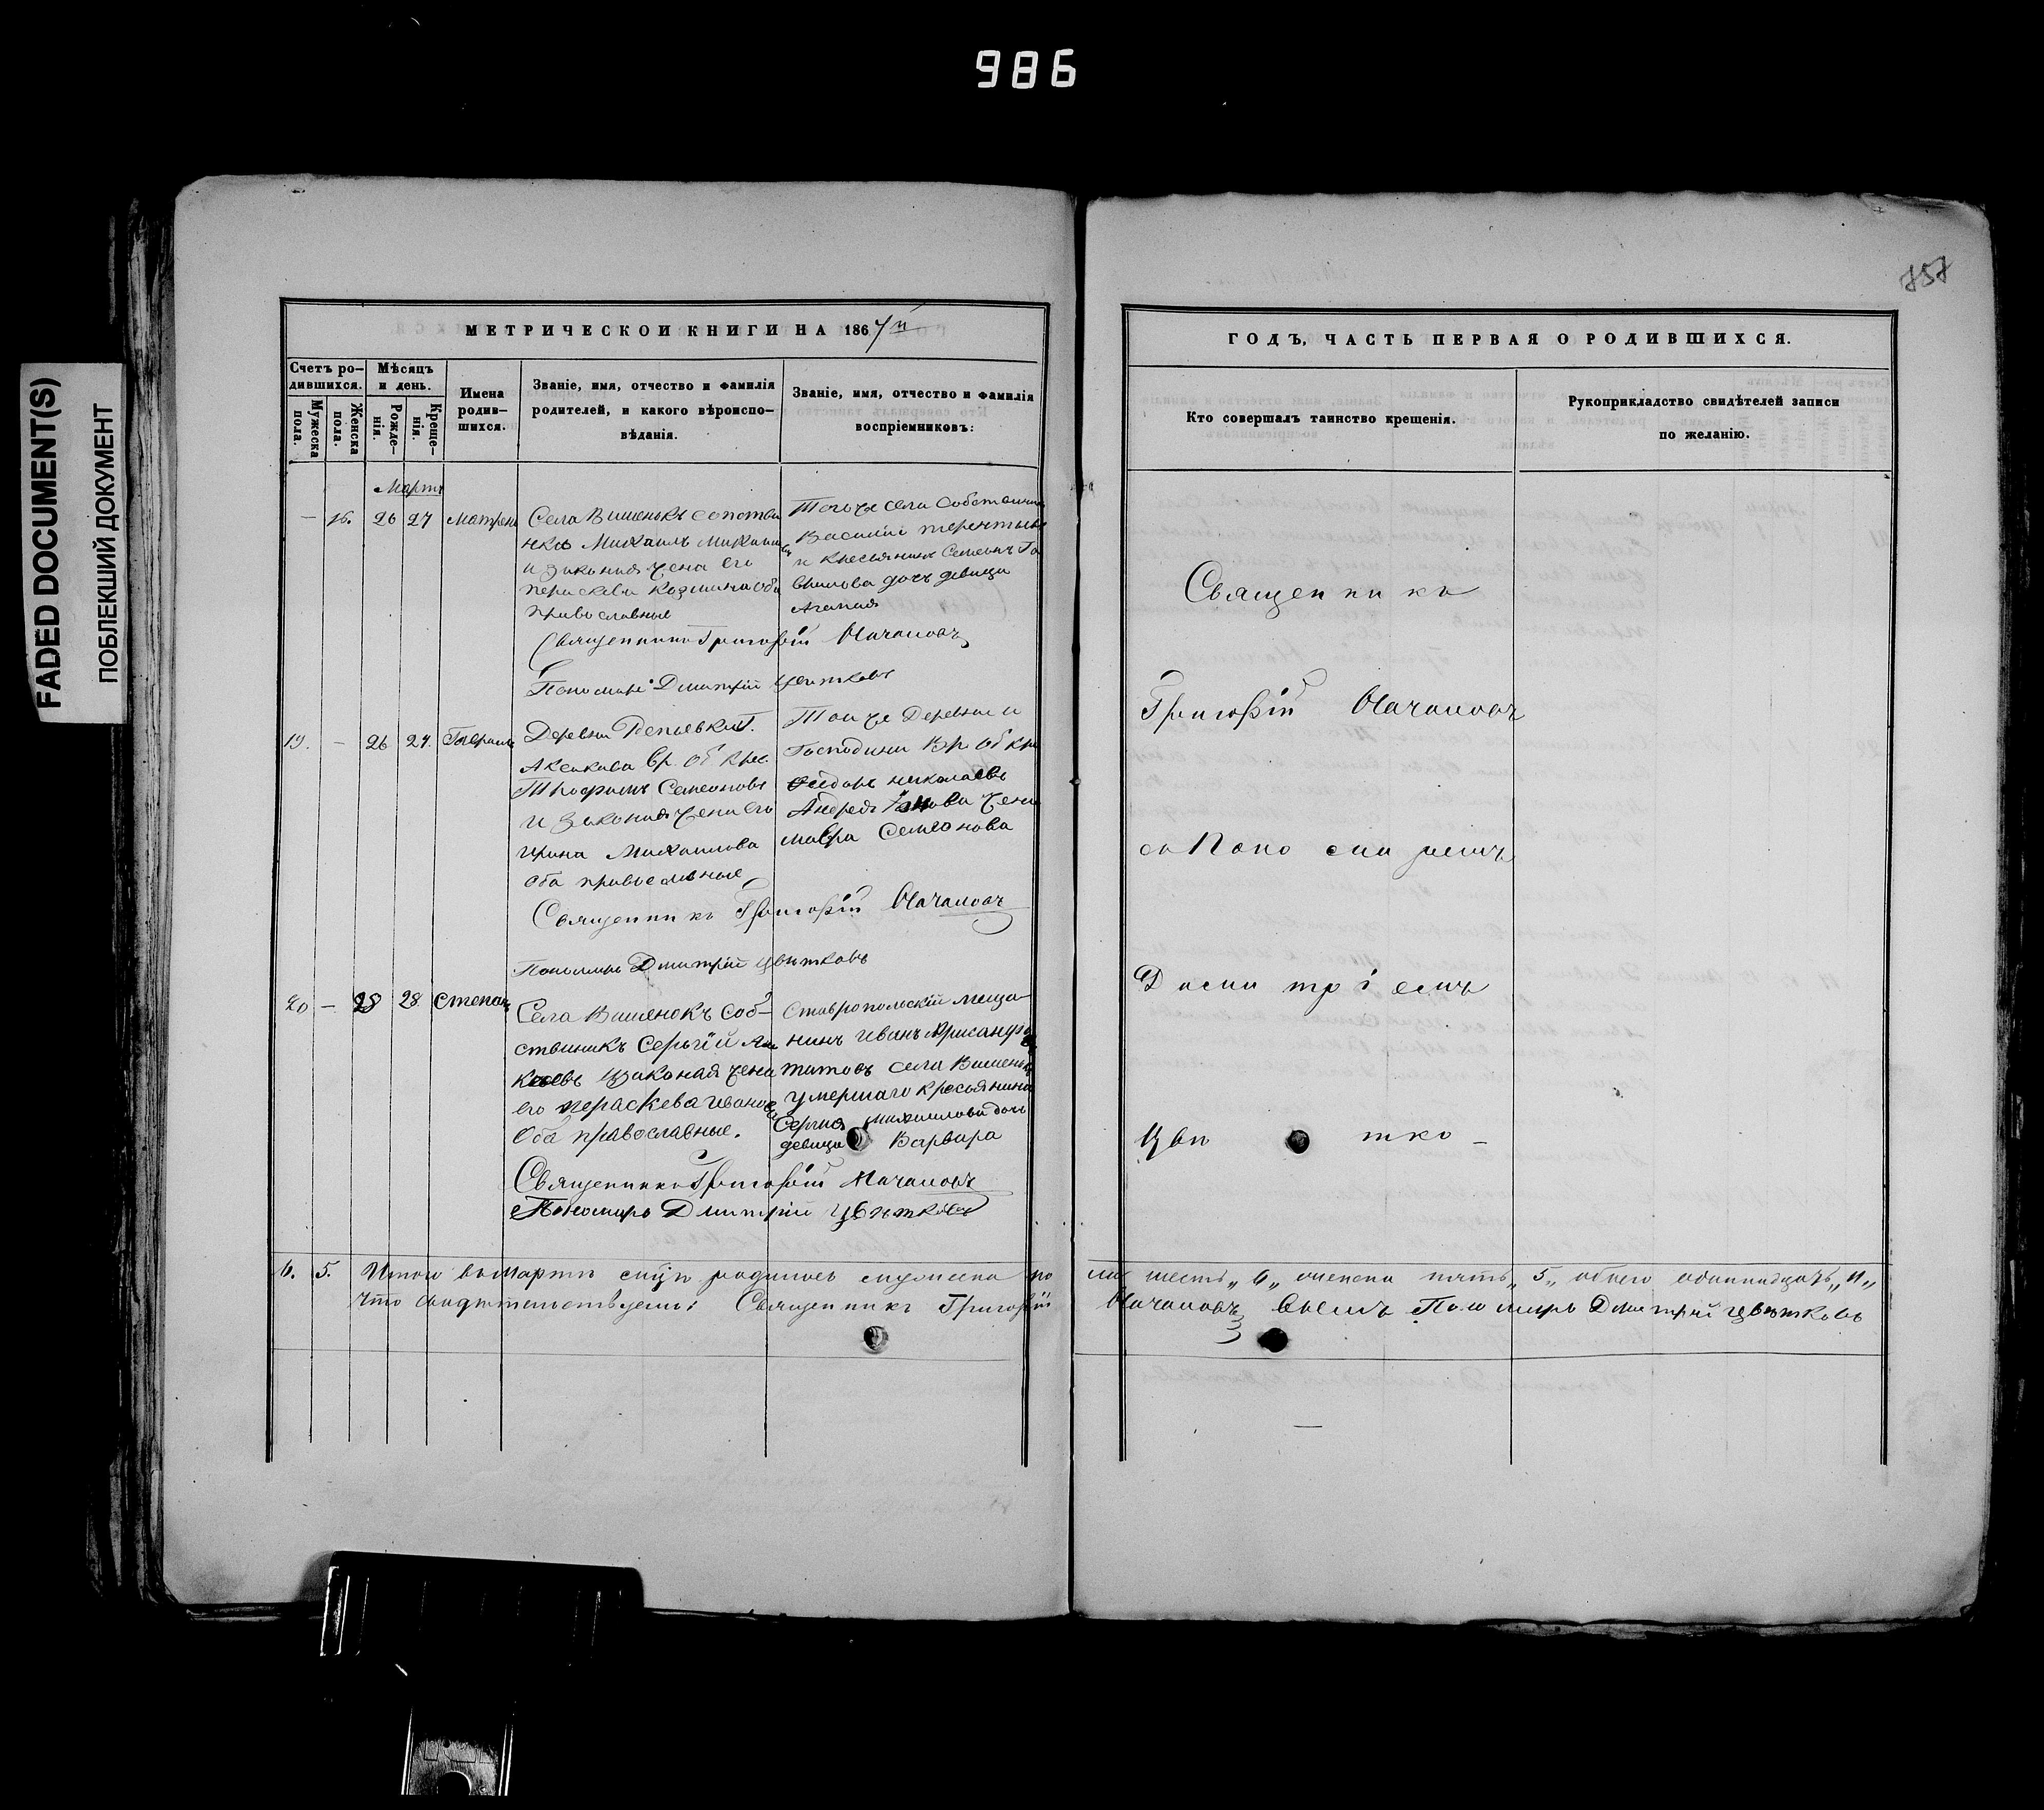 986
FADED DOCUMENT(S)
ПОБЛЕКШИЙ ДОКУМЕНТ
757
МЕТРИЧЕСКОИ КНИГИ НА 1867й
Счетъ ро-
дившихся.
Мужеска
пола.
Женска
пола.
Мѣсяцъ
и день.
Рожде-
нія.
Креще-
нія.
Имена
родив-
шихся.
Званіе, имя, отчество и фамилія
родителей, и какого вѣроиспо-
вѣданія.
Званіе, имя, отчество и фамилія
воспріемниковъ:
Мартъ
— 16. 26 27 Матрена
Села Вишенькъ сопстве
нкъ Михаилъ Михаило
и законная жена его
пераскева Козмина оба
православные
Тогоже села Собственник
Василий терентьевъ
и Кресьянина Семена Га
врилова дочь девица
Агапия
Священникъ Григорій
Пономарь Дмитрій Цветковъ
19. — 26 27. Гаврилъ
Деревни Репьевки Г.
Аксакова Вр. Об Крес.
Трофимъ Семеоновъ
и Законная жена его
ирина Михаилова
оба православные
Тои же Деревни и
Господина Вр Об Кре
Фёдоръ николаевъ
Андрея жена
мавра Семеонова
Священникъ Григорій
Пономарь Дмитрій Цвѣтковъ
20 — 28 28 Степанъ
Села Вишенокъ Соб-
ственикъ Сергій
изаконая жена
его пераскева иванова
Оба православные.
Ставропольскій меща-
нинъ иванъ
титовъ села Вишенькъ
умершаго кресьянина
Сергия михаилова дочь
девица Варвара
Священникъ Григорій
Пономарь Дмитрій Цвѣтковъ
6. 5. Итого въ Мартѣ родилось мужеска по
Что свидѣтельствуемъ: Священникъ Григорій
ГОДЪ, ЧАСТЬ ПЕРВАЯ О РОДИВШИХСЯ.
Кто совершалъ таинство крещенія.
Рукоприкладство свидѣтелей записи
по желанію.
Священникъ
Григорій
съ Поно маремъ
Димитріемъ
Цвѣ тко -
ла шесть „6„ женска пять „5„ обоего одиннадцать „11„
Пономарь Дмитрій Цвѣтковъ